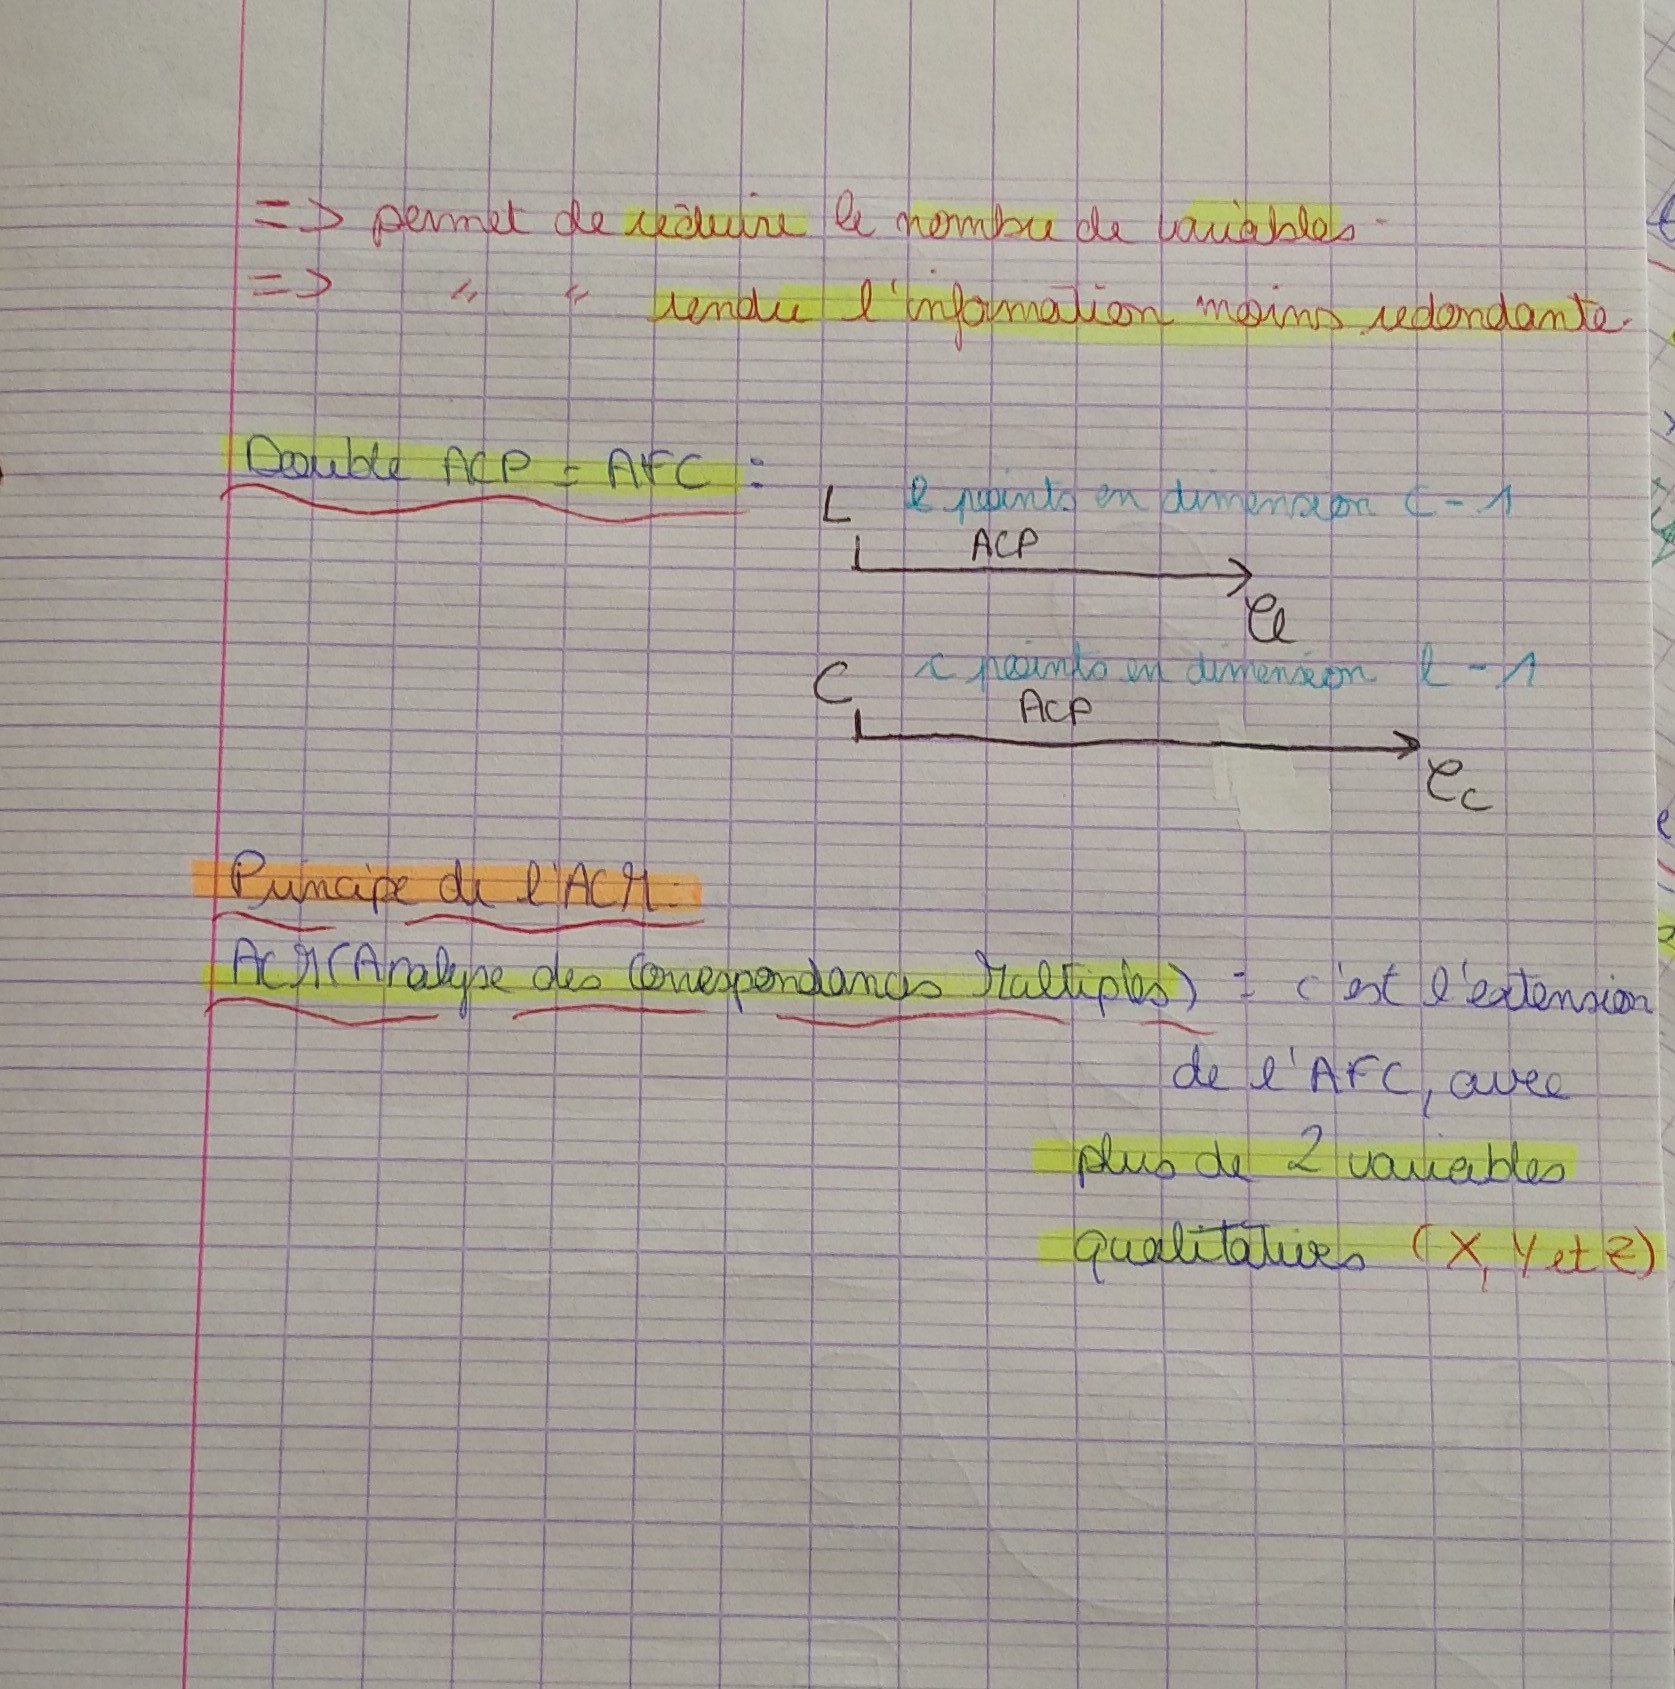 => permet de réduire le nombre de variables.
=> " " rendre l'information moins redondante.
Double ACP = AFC :
L l points en dimension c - 1
ACP
Cl
C c points en dimension l - 1
ACP
Cc
Principe de l'ACM.
ACM (Analyse des Correspondances Multiples) : c'est l'extension
de l'AFC, avec
plus de 2 variables
qualitatives (X, Y et Z)